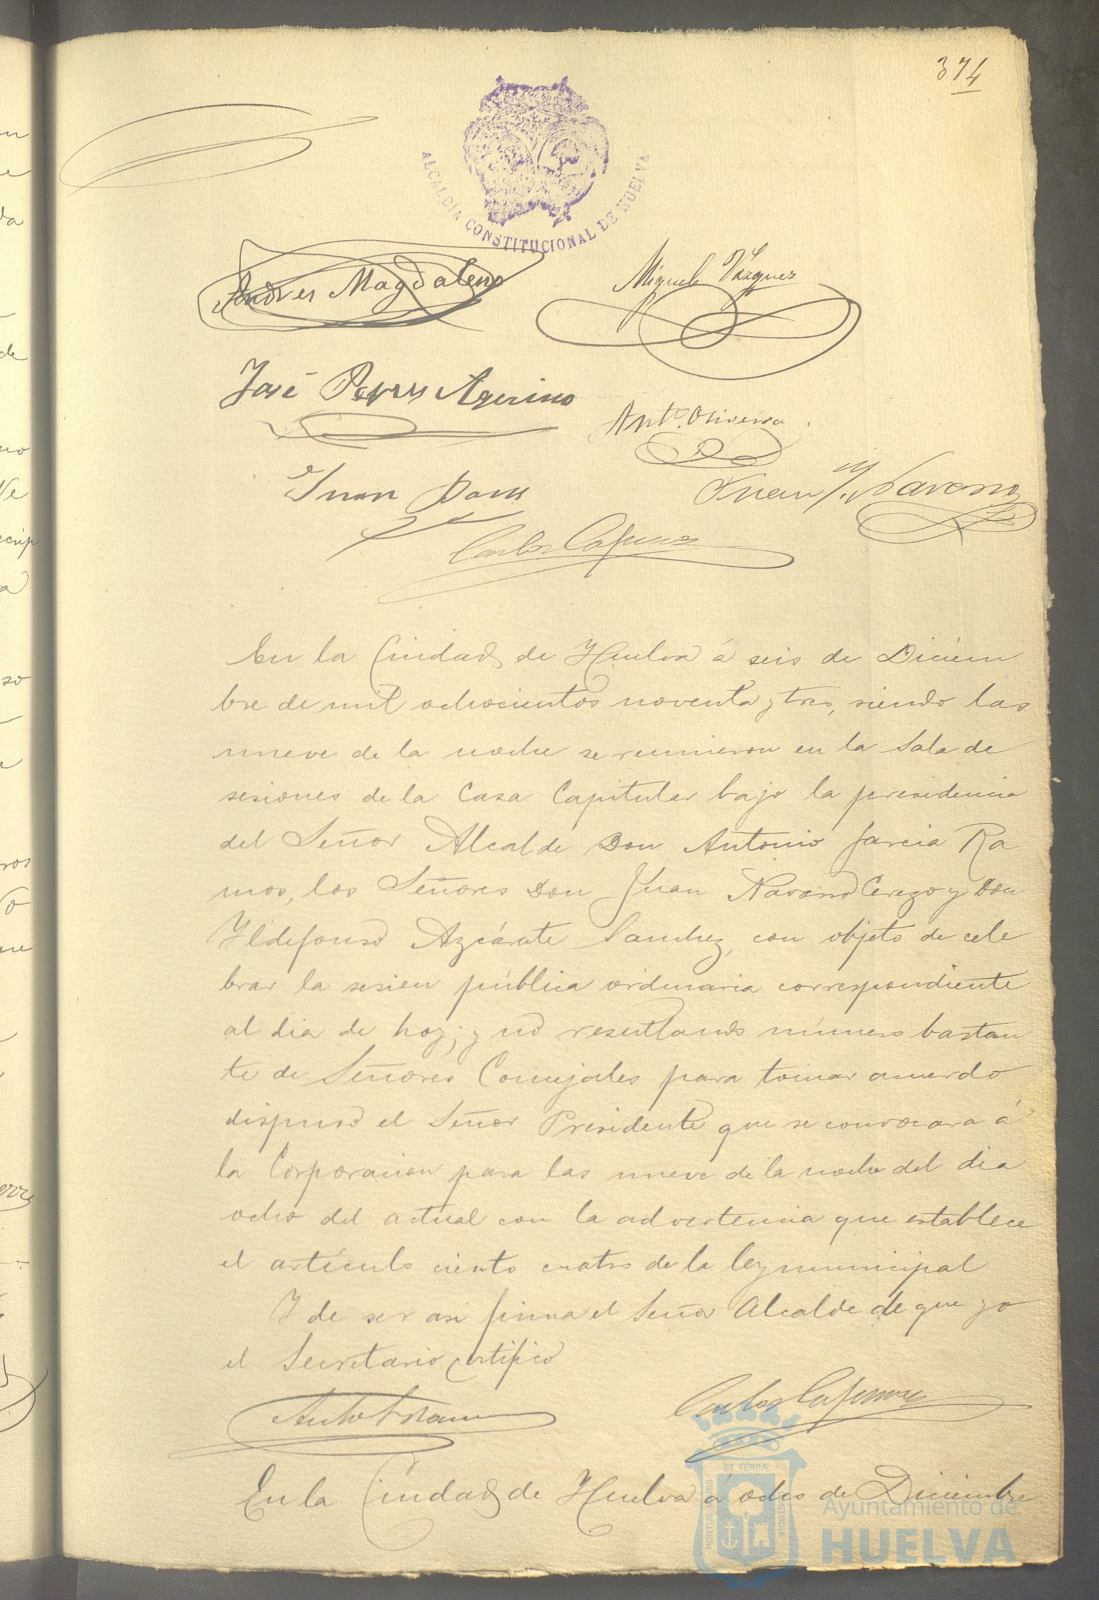 374
ALCALDÍA CONSTITUCIONAL DE HUELVA
Andres Magdaleno
Miguel Vázquez
José
Antº. Oliveira
Juan
Juan Navarro
Carlos
En la Ciudad de Huelva á seis de Diciem
bre de mil ochocientos noventa y tres, siendo las
nueve de la noche se reunieron en la Sala de
sesiones de la Casa Capitular bajo la presidencia
del Señor Alcalde Don Antonio Garcia Ra
mos, los Señores Don Juan Navarro Cerezo y Don
Yldefonso Azcárate Sanchez, con objeto de cele
brar la sesion pública ordinaria correspondiente
al dia de hoy; y no resultando número bastan
te de Señores Concejales para tomar acuerdo
dispuso el Señor Presidente que se convocara á
la Corporacion para las nueve de la noche del dia
ocho del actual con la advertencia que establece
el artículo ciento cuatro de la ley municipal
Y de ser asi firma el Señor Alcalde de que yo
el Secretario certifico
Carlos
En la Ciudad de Huelva á ocho de Diciembre
Ayuntamiento de
HUELVA